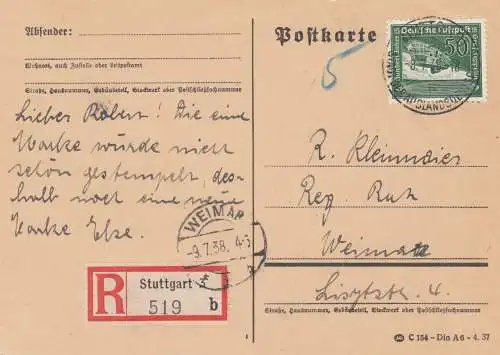 Absender:
Wohnort, auch Zustell- oder Leitpostamt
Straße, Hausnummer, Gebäudeteil, Stockwerk oder Postschließfachnummer
Lieber Robert! Die eine
Marke wurde nicht
schön gestempelt, des-
halb noch eine neue
Marke Else.
WEIMAR
-9.7.38. 4-5
R
Stuttgart 5
519 b
Postkarte
5
Deutsche Luftpost
50
R. Kleinmaier
Reg. Rat
Weimar
Lisztstr. 4.
Straße, Hausnummer, Gebäudeteil, Stockwerk oder Postschließfachnummer
C 154 – Din A 6 - 4. 37